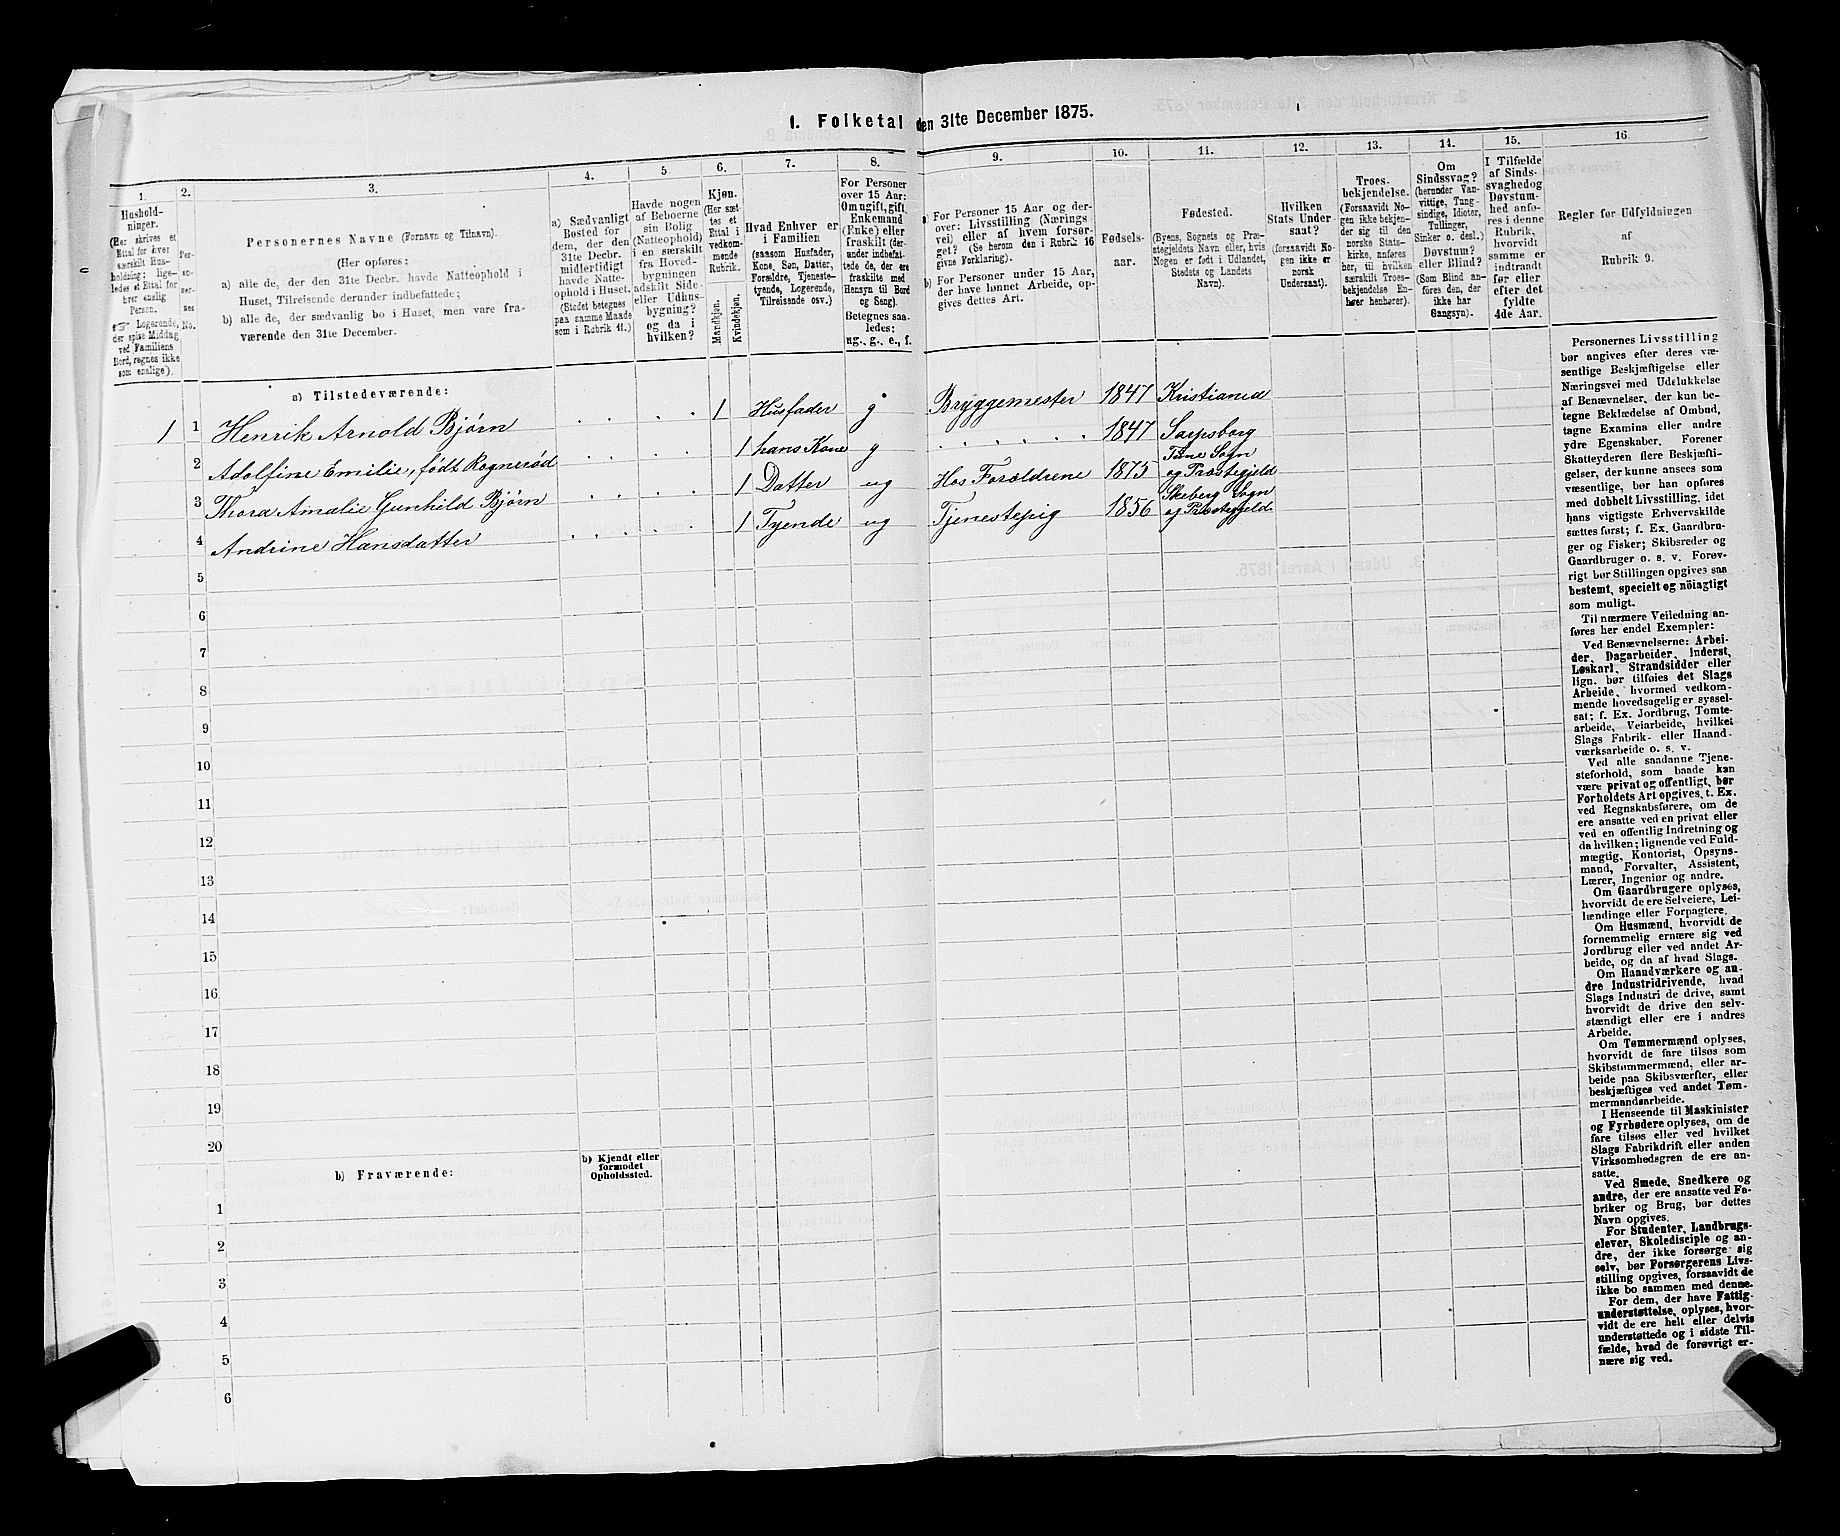 1. Folketal den 31te December 1875.
1.
Hushold-
ninger.
(Her skrives et
Ettal for hver
særskilt Hus-
holdning; lige-
ledes et Ettal for
hver enslig
Person.
☞ Logerende,
der spise Middag
ved Familiens
Bord, regnes ikke
som enslige).
2.
Per-
so-
ner-
nes
No.
3.
Personernes Navne (Fornavn og Tilnavn).
(Her opføres:
a) alle de, der den 31te Decbr. havde Natteophold i
Huset, Tilreisende derunder indbefattede;
b) alle de, der sædvanlig bo i Huset, men vare fra-
værende den 31te December.
4.
a) Sædvanligt
Bosted for
dem, der den
31te Decbr.
midlertidigt
havde Natte-
ophold i Huset.
(Stedet betegnes
paa samme Maade
som i Rubrik 11.)
5
Havde nogen
af Beboerne
sin Bolig
(Natteophold)
i en særskilt
fra Hoved-
bygningen
adskilt Side-
eller Udhus-
bygning?
og da i
hvilken?
6.
Kjøn.
(Her sæt-
tes et
Ettal i
vedkom-
mende
Rubrik.
Mandkjøn.
Kvindekjøn.
7.
Hvad Enhver er
i Familien
(saasom Husfader,
Kone, Søn, Datter,
Forældre, Tjeneste-
tyende, Logerende,
Tilreisende osv.)
8.
For Personer
over 15 Aar:
Om ugift, gift,
Enkemand
(Enke) eller
fraskilt (der-
under indbefat-
tede de, der ere
fraskilte med
Hensyn til Bord
og Seng).
Betegnes saa-
ledes:
ug., g., e., f.
9.
a) For Personer 15 Aar og der-
over: Livsstilling (Nærings
vei) eller af hvem forsør-
get? (Se herom den i Rubrik 16
givne Forklaring).
b) For Personer under 15 Aar,
der have lønnet Arbeide, op-
gives dettes Art.
10.
Fødsels-
aar.
11.
Fødested.
(Byens, Sognets og Præ-
stegjeldets Navn eller, hvis
Nogen er født i Udlandet,
Stedets og Landets
Navn).
12.
Hvilken
Stats Under-
saat?
(forsaavidt No-
gen ikke er
norsk
Undersaat).
13.
Troes-
bekjendelse.
(Forsaavidt No-
gen ikke bekjen-
der sig til den
norske Stats-
kirke, anføres
her, til hvilken
særskilt Troes-
bekjendelse En-
hver henhører).
14.
Om
Sindssvag?
(herunder Van-
vittige, Tung-
sindige, Idioter,
Tullinger,
Sinker o. desl.)
Døvstum?
eller Blind?
(Som Blind an-
føres den, der
ikke har
Gangsyn).
15.
I Tilfælde
af Sinds-
svaghed og
Døvstum-
hed anfø-
res i denne
Rubrik,
hvorvidt
samme er
indtraadt
før eller
efter det
fyldte
4de Aar.
16
Regler for Udfyldningen
af
Rubrik 9.
a) Tilstedeværende:
1 1 Henrik Arnold Bjørn 1 Husfader g Bryggemester 1847 Kristiania
2 Adolfine Emilie, født Rognerød 1 hans Kone g 1847 Sarpsborg
3 Thora Amalie Gunhild Bjørn 1 Datter ug Hos Forældrene 1875 Tune Sogn
og Præstegjeld
4 Andrine Hansdatter 1 Tyende ug Tjenestepig 1856 Skeberg Sogn
og Præstegjeld
5
6
7
8
9
10
11
12
13
14
15
16
17
18
19
20
b) Fraværende:
b) Kjendt eller
formodet
Opholdssted.
1
2
3
4
5
6
Personernes Livsstilling
bør angives efter deres væ-
sentlige Beskjæftigelse eller
Næringsvei med Udelukkelse
af Benævnelser, der kun be-
tegne Beklædelse af Ombud,
tagne Examina eller andre
ydre Egenskaber. Forener
Skatteyderen flere Beskjæfti-
gelser, der kunne ansees som
væsentlige, bør han opføres
med dobbelt Livsstilling, idet
hans vigtigste Erhvervskilde
sættes først; f. Ex. Gaardbru-
ger og Fisker; Skibsreder og
Gaardbruger o. s. v. Forøv-
rigt bør Stillingen opgives saa
bestemt, specielt og nöiagtigt
som muligt.
Til nærmere Veiledning an-
føres her endel Exempler:
Ved Benævnelserne: Arbei-
der, Dagarbeider, Inderst,
Løskarl, Strandsidder eller
lign. bør tilføies det Slags
Arbeide, hvormed vedkom-
mende hovedsagelig er syssel-
sat; f. Ex. Jordbrug, Tomte-
arbeide, Veiarbeide, hvilket
Slags Fabrik- eller Haand-
værksarbeide o. s. v.
Ved alle saadanne Tjene-
steforhold, som baade kan
være privat og offentligt, bør
Forholdets Art opgives, t. Ex.
ved Regnskabsførere, om de
ere ansatte ved en privat eller
ved en offentlig Indretning og
da hvilken; lignende ved Fuld-
mægtig, Kontorist, Opsyns-
mand, Forvalter, Assistent,
Lærer, Ingeniør og andre.
Om Gaardbrugere oplyses,
hvorvidt de ere Selveiere, Lei-
lændinge eller Forpagtere.
Om Husmænd, hvorvidt de
fornemmelig ernære sig ved
Jordbrug eller ved andet Ar-
beide, og da af hvad Slags.
Om Haandværkere og an-
dre Industridrivende, hvad
Slags Industri de drive, samt
hvorvidt de drive den selv-
stændigt eller ere i andres
Arbeide.
Om Tømmermænd oplyses,
hvorvidt de fare tilsøs som
Skibstømmermænd, eller ar-
beide paa Skibsværfter, eller
beskjæftiges ved andet Tøm-
mermandsarbeide.
I Henseende til Maskinister
og Fyrbødere oplyses, om de
fare tilsøs eller ved hvilket
Slags Fabrikdrift eller anden
Virksomhedsgren de ere an-
satte.
Ved Smede, Snedkere og
andre, der ere ansatte ved Fa-
briker og Brug, bør dettes
Navn opgives.
For Studenter, Landbrugs-
elever, Skoledisciple og an-
dre, der ikke forsørge sig
selv, bør Forsørgerens Livs-
stilling opgives, forsaavidt de
ikke bo sammen med denne.
For dem, der have Fattig-
understøttelse, oplyses, hvor-
vidt de ere helt eller delvis
understøttede og i sidste Til-
fælde, hvad de forøvrigt er-
nære sig ved.